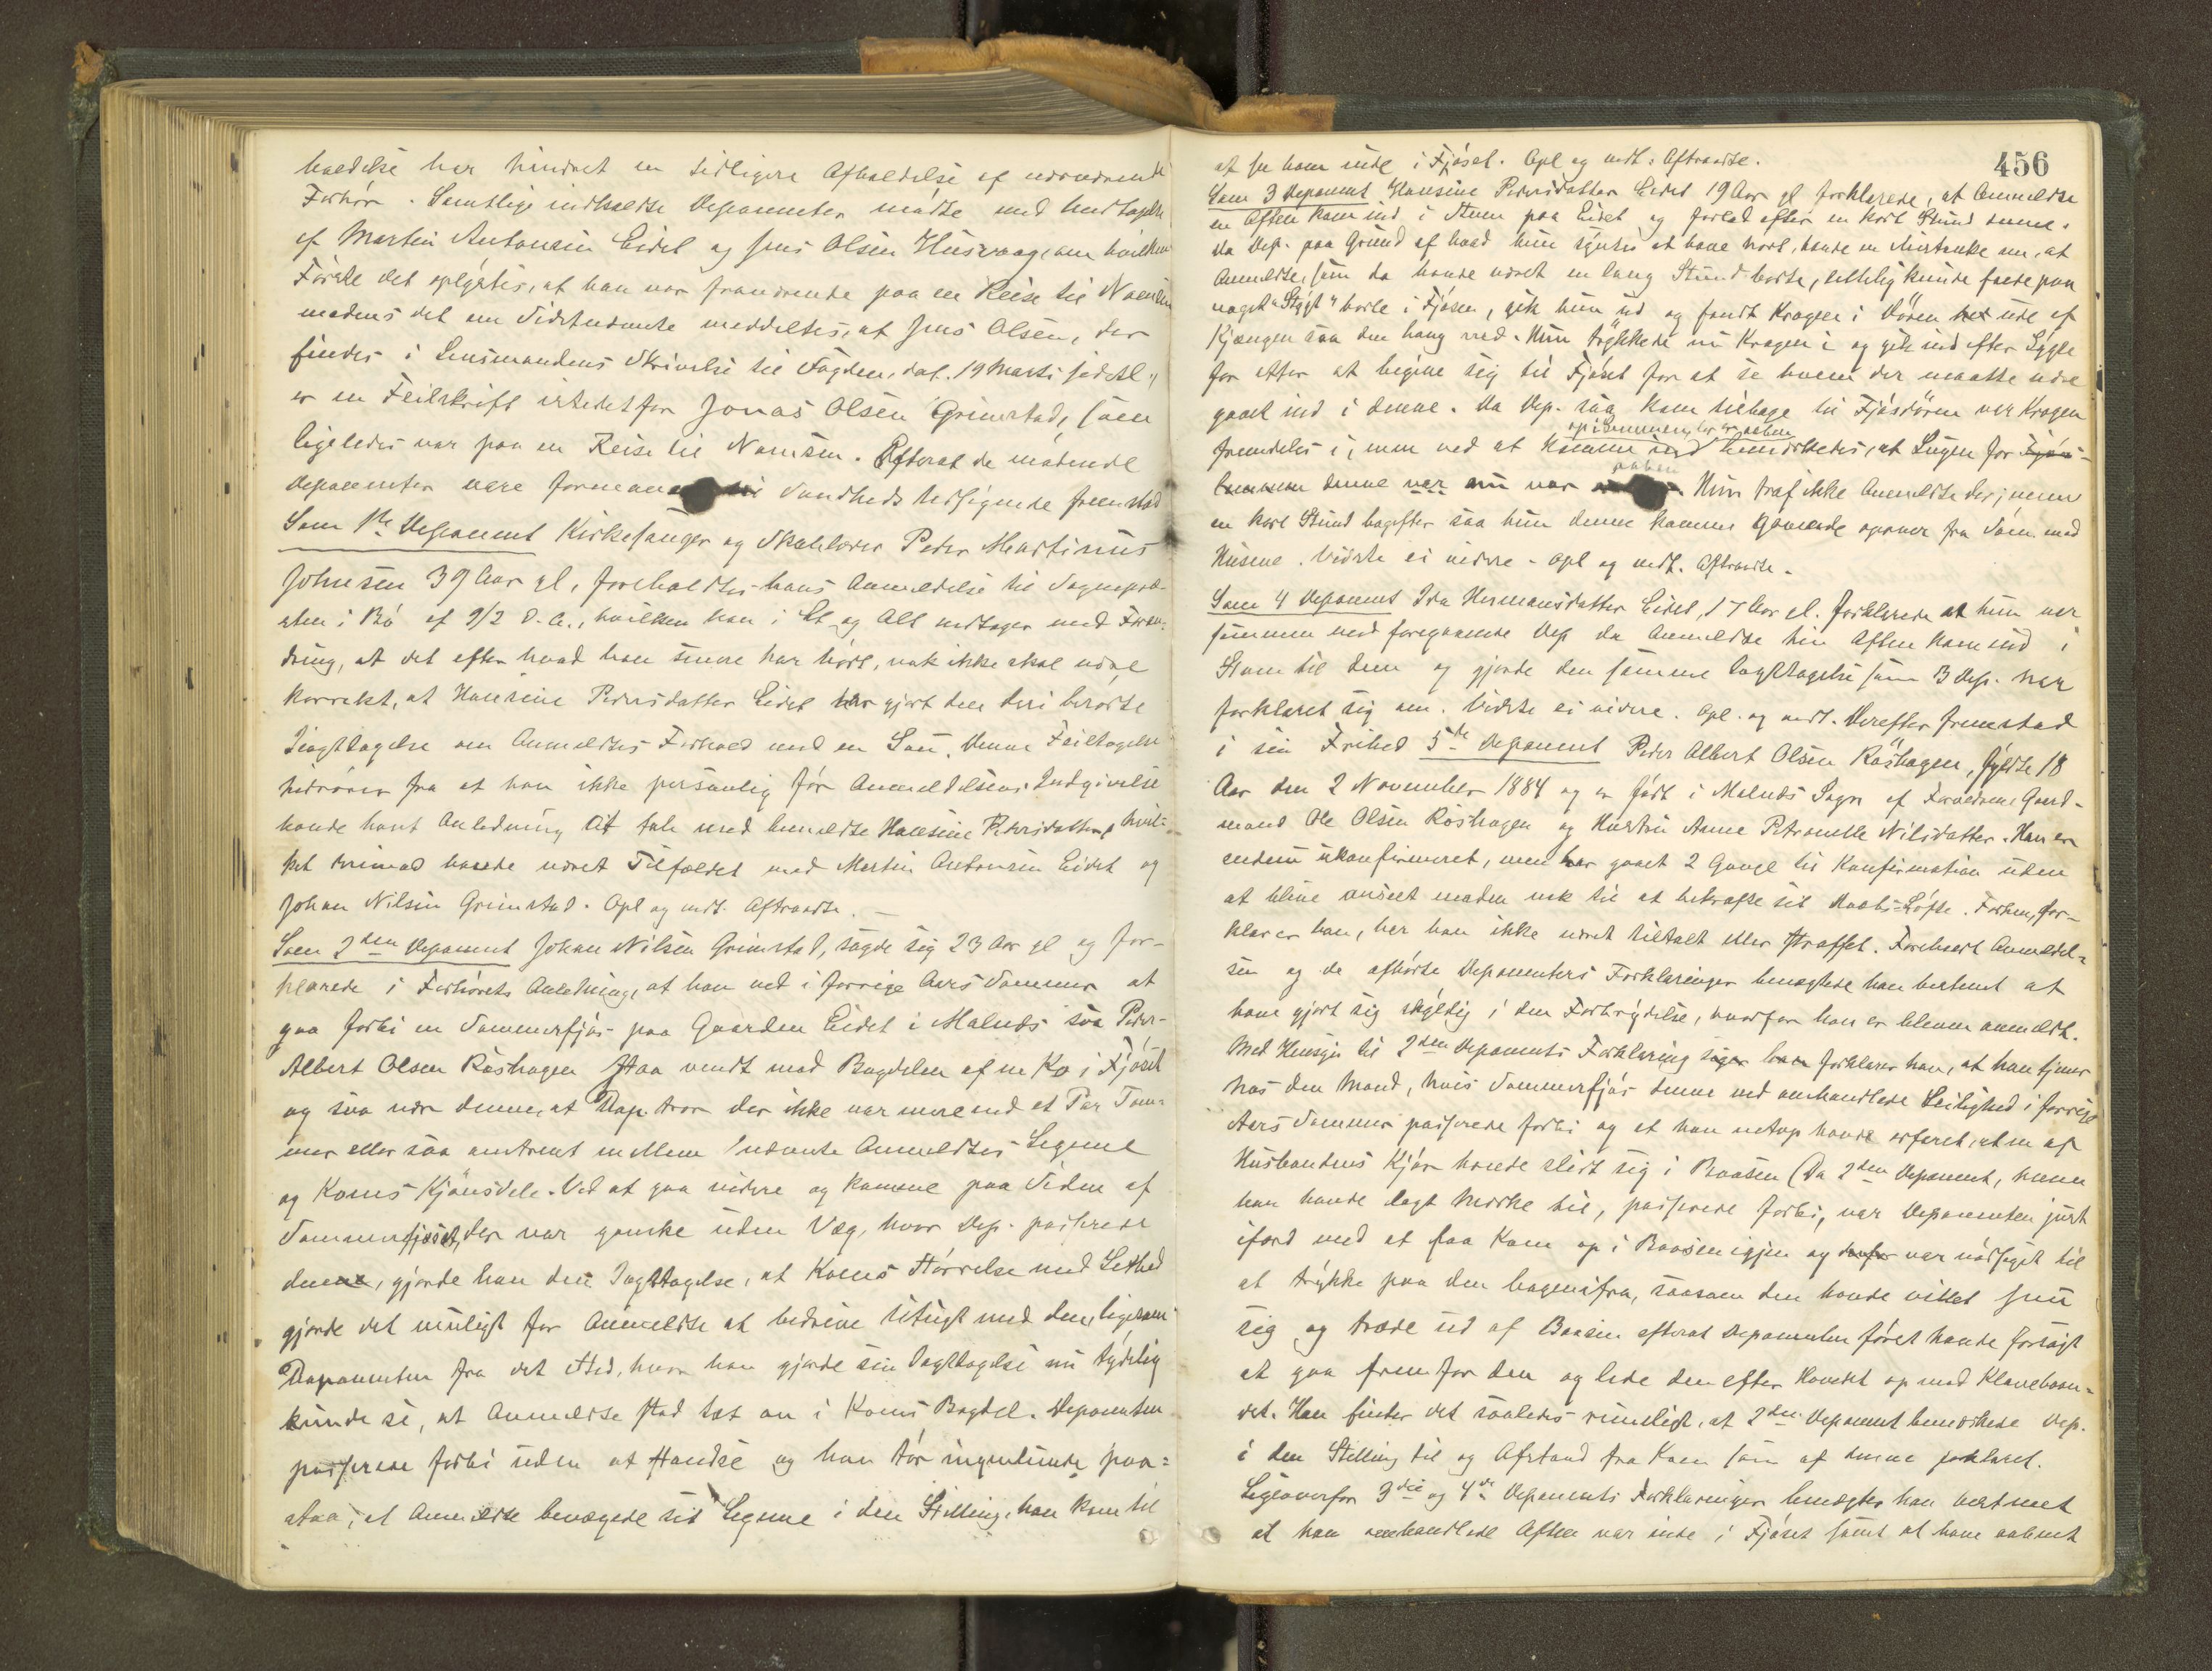 holdelse har hindret en tidligere Afholdelse af nærværende
Forhør. Samtlige indkaldte Deponenter mødte med Undtagelse
af Martin Antonsen Eidet og Jens Olsen Husvaag, om hvilken
Første det oplystes, at han var fraværende paa en Reise til Namsen
medens det om Sidstnævnte meddeltes, at Jens Olsen, der
findes i Lensmandens Skrivelse til Fogden, dat. 19 Marts sidstl.,
er en Feilskrift istedetfor Jonas Olsen Grimstad, som
ligeledes var paa en Reise til Namsen. Efterat de mødende
Deponenter vare formanet til Sandheds Udsigende fremstod
Som 1ste Deponent Kirkesanger og Skolelærer Peder Martinus
Johnsen 39 Aar gl., foreholdtes hans Anmeldelse til Sognepræ-
sten i Bø af 9/2 d. A., hvilken han i Et og Alt vedtager med Foran-
dring, at det efter hvad han senere har hørt, nok ikke skal være
korrekt, at Hansine Pedersdatter Eidet har gjort den deri berørte
Iagttagelse om Anmeldtes Forhold med en Sau. Denne Feiltagelse
hidrører fra at han ikke personlig før Anmeldelsens Indgivelse
havde havt Anledning at tale med bemeldte Hansine Pedersdatter, hvil-
ket derimod havde været Tilfældet med Martin Antonsen Eidet og
Johan Nilsen Grimstad. Opl og vedt. Aftraadte. —
Som 2den Deponent Johan Nilsen Grimstad, sagde sig 23 Aar gl og for-
klarede i Forhørets Anledning, at han ved i forrige Aars Sommer at
gaa forbi en Sommerfjøs paa Gaarden Eidet i Malnæs saa Peder
Albert Olsen Røshagen staa vendt mod Bagdelen af en Ko i Fjøset
og saa nær denne, at Dep. tror der ikke var mere end et Par Tom-
mer eller saa omtrent mellem nævnte Anmeldtes Legeme
og Koens Kjønsdele. Ved at gaa videre og komme paa Siden af
Sommerfjøset, der var ganske uden Væg, hvor Dep. passerede
denne, gjorde han den Iagttagelse, at Koens Størrelse med Lethed
gjorde det muligt for Anmeldte at bedrive Utugt med den, ligesom
Deponenten fra det Sted, hvor han gjorde sin Iagttagelse nu tydelig
kunde se, at Anmeldte stod tæt an i Koens Bagdel. Deponenten
passerede forbi uden at standse og han tør ingenlunde paa-
staa, at Anmeldte bevægede sit Legeme i den Stilling, han kom til
456
at se ham inde i Fjøset. Opl og vedt. Aftraadte.
Som 3 Deponent Hansine Pedersdatter Eidet 19 Aar gl forklarede, at Anmeldte
en Aften kom ind i Stuen paa Eidet og forlod efter en kort Stund denne.
Da Dep. paa Grund af hvad hun syntes at have hørt, havde en Mistanke om, at
Anmeldte, som da havde været en lang Stund borte, letteligt kunde finde paa
noget "Stygt" borte i Fjøsen, gik hun ud og fandt Kragen i Døren ude af
Kjængen saa den hang ned. Hun trykkede nu Kragen i og gik ind efter Lygte
for atter at begive sig til Fjøset for at se hvem der maatte være
gaaet ind i denne. Da Dep. saa kom tilbage til Fjøsdøren var Kragen
fremdeles i, men ved at komme ind bemærkedes, at Lugen for
denne var nu var aaben Hun traf ikke Anmeldte der; men
en kort Stund bagefter saa hun denne komme gaaende opover fra Søen mod
Husene. Vidste ei videre. Opl og vedt. Aftraadte.
Som 4 Deponent Ida Hermansdatter Eidet, 17 Aar gl. forklarede at hun var
sammen med foregaaende Dep da Anmeldte hin Aften kom ind i
Stuen til dem og gjorde den samme Iagttagelse som 3 Dep. har
forklaret sig om. Vidste ei videre. Opl. og vedt. Derefter fremstod
i sin Frihed 5te Deponent Peder Albert Olsen Røshagen, fyldte 18
Aar den 2 November 1884 og er født i Malnæs Sogn af Forældrene Gaard-
mand Ole Olsen Røshagen og Hustru Anne Petronelle Nilsdatter. Han er
endnu ukonfirmeret, men har gaaet 2 Gange til Konfirmation uden
at blive anseet moden nok til at bekræfte sit Daabs-Løfte. Forhen, for-
klarer han, har han ikke været tiltalt eller straffet. Forelæst Anmeldel-
sen og de afhørte Deponenters Forklaringer benægtede han bestemt at
have gjort sig skyldig i den Forbrydelse, hvorfor han er bleven anmeldt.
Med Hensyn til 2den Deponents Forklaring siger han forklarer han, at han tjener
hos den Mand, hvis Sommerfjøs denne ved omhandlede Leilighed i forrige
Aars Sommer passerede forbi og at han netop havde erfaret, at en af
Husbondens Kjør havde slidt sig i Baasen (Da 2den Deponent, hvem
han havde lagt Mærke til, passerede forbi, var Deponenten just
ifærd med at faa Koen op i Baasen igjen og derfor var nødsaget til
at trykke paa den bagenifra, saasom den havde villet snu
sig og træde ud af Baasen efterat Deponenten først havde forsøgt
at gaa frem for den og lede den efter Hovedet op mod Klavebaan-
det. Han finder det saaledes rimeligt, at 2den Deponent bemærkede Dep.
i den Stilling til og Afstand fra Koen som af denne forklaret.
Ligeoverfor 3die og 4de Deponents Forklaringer benægter han bestemt
at han omhandlede Aften var inde i Fjøset samt at have aabnet